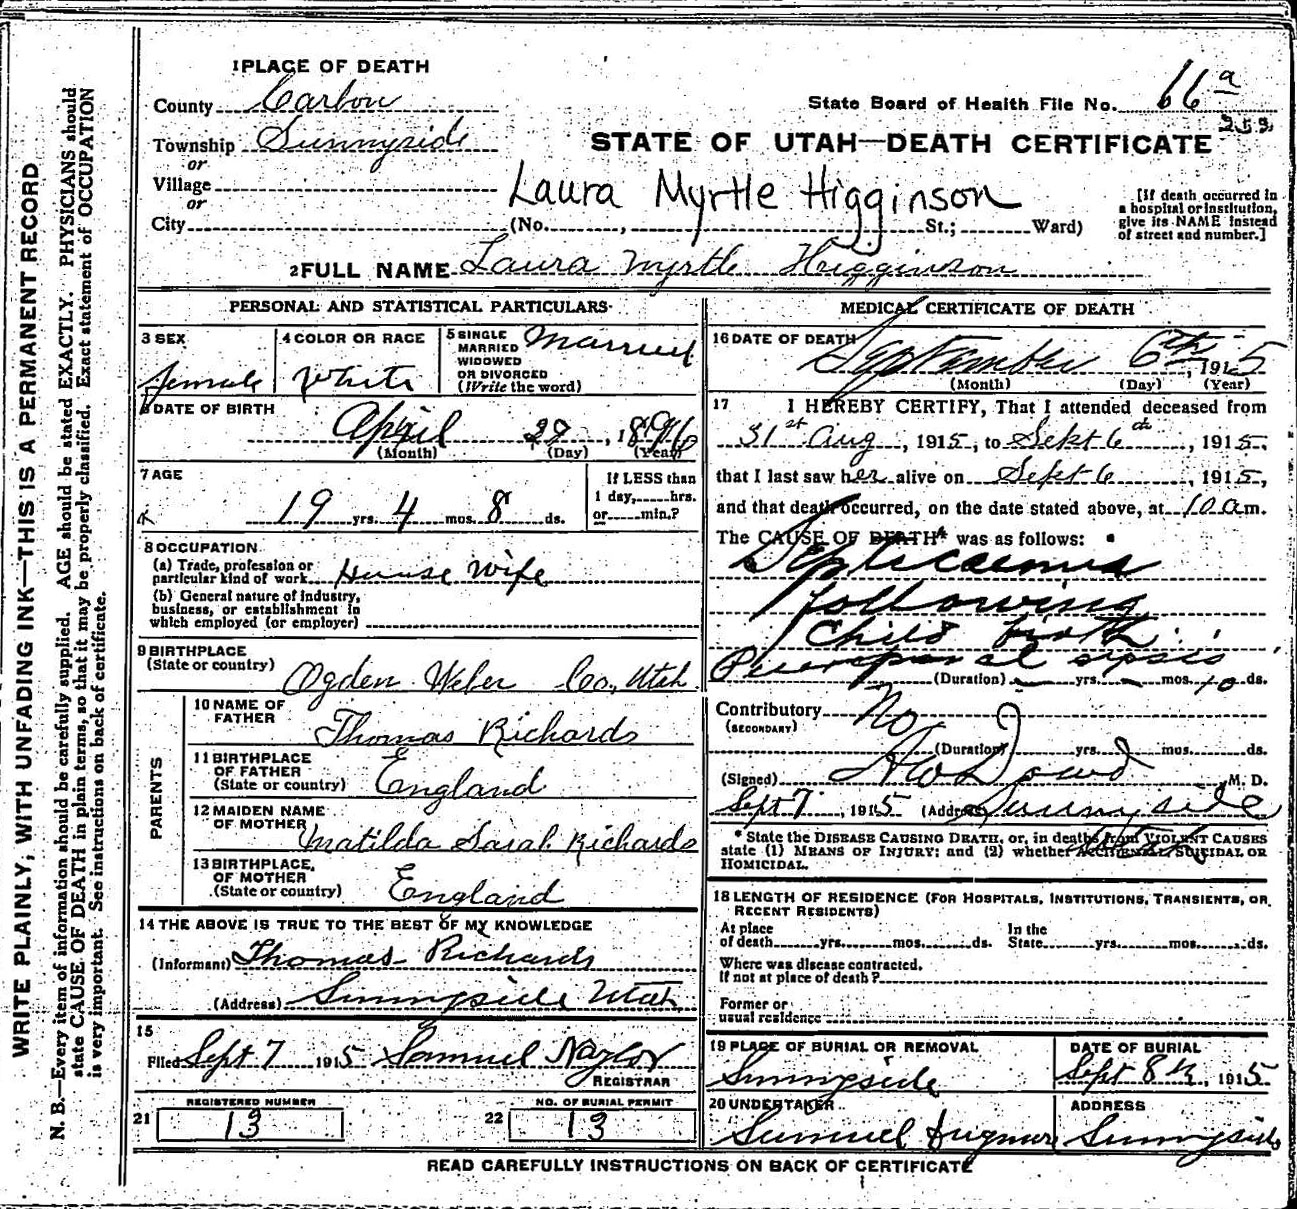 WRITE PLAINLY, WITH UNFADING INK—THIS IS A PERMANENT RECORD
N. B.—Every item of information should be carefully supplied. AGE should be stated EXACTLY. PHYSICIANS should
state CAUSE OF DEATH in plain terms, so that it may be properly classified. Exact statement of OCCUPATION
is very important. See instructions on back of certificate.
1 PLACE OF DEATH
County Carbon
Township Sunnyside
or
Village
or
City
State Board of Health File No. 66 a
253
STATE OF UTAH—DEATH CERTIFICATE
Laura Myrtle Higginson
(No. , St.; Ward)
[If death occurred in
a hospital or institution,
give its NAME instead
of street and number.]
2 FULL NAME Laura Myrtle Higginson
PERSONAL AND STATISTICAL PARTICULARS
3 SEX
female
4 COLOR OR RACE
White
5 SINGLE
MARRIED
WIDOWED
OR DIVORCED
(Write the word)
Married
6 DATE OF BIRTH
April 29, 1896
(Month) (Day) (Year)
7 AGE
19 yrs. 4 mos. 8 ds.
If LESS than
1 day, hrs.
or min.?
8 OCCUPATION
(a) Trade, profession or
particular kind of work House Wife
(b) General nature of industry,
business, or establishment in
which employed (or employer)
9 BIRTHPLACE
(State or country) Ogden Weber Co, Utah
PARENTS
10 NAME OF
FATHER Thomas Richards
11 BIRTHPLACE
OF FATHER
(State or country) England
12 MAIDEN NAME
OF MOTHER Matilda Sarah Richards
13 BIRTHPLACE
OF MOTHER
(State or country) England
14 THE ABOVE IS TRUE TO THE BEST OF MY KNOWLEDGE
(Informant) Thomas Richards
(Address) Sunnyside Utah
15
Filed Sept 7 1915 Samuel Naylor
REGISTRAR
21 REGISTERED NUMBER
13
22 NO. OF BURIAL PERMIT
13
MEDICAL CERTIFICATE OF DEATH
16 DATE OF DEATH
September 6th, 1915
(Month) (Day) (Year)
17 I HEREBY CERTIFY, That I attended deceased from
31st Aug, 1915, to Sept 6th, 1915,
that I last saw her alive on Sept 6, 1915,
and that death occurred, on the date stated above, at 10 a m.
The CAUSE OF DEATH* was as follows:
Septicaemia
following
Child birth
Puerperal sepsis
(Duration) yrs. mos. 10 ds.
Contributory No
(SECONDARY)
(Duration) yrs. mos. ds.
(Signed) Dowd, M. D.
Sept 7, 1915 (Address) Sunnyside
Utah
* State the DISEASE CAUSING DEATH, or, in deaths from VIOLENT CAUSES
state (1) MEANS OF INJURY; and (2) whether ACCIDENTAL, SUICIDAL OR
HOMICIDAL.
18 LENGTH OF RESIDENCE (FOR HOSPITALS, INSTITUTIONS, TRANSIENTS, OR
RECENT RESIDENTS)
At place
of death yrs. mos. ds.
In the
State yrs. mos. ds.
Where was disease contracted,
if not at place of death?
Former or
usual residence
19 PLACE OF BURIAL OR REMOVAL
Sunnyside
DATE OF BURIAL
Sept 8th, 1915
20 UNDERTAKER
Samuel
ADDRESS
Sunnyside
READ CAREFULLY INSTRUCTIONS ON BACK OF CERTIFICATE